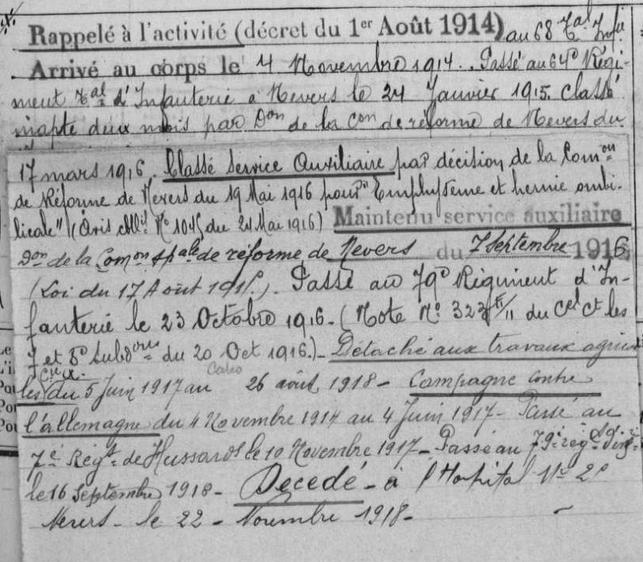 Rappelé à l'activité (décret du 1er Août 1914) au 68 Tal Infie
Arrivé au corps le 4 Novembre 1914. Passé au 64e Régi-
ment Tal d'Infanterie à Nevers le 24 Janvier 1915. Classé
inapte deux mois par Don de la Con de réforme de Nevers du
17 mars 1916. Classé Service Auxiliaire par décision de la Comon
de Réforme de Nevers du 19 Mai 1916 pour "Emphysème et hernie ombi-
licale" (Avis du 24 Mai 1916) Maintenu service auxiliaire
Don de la Comon spale de réforme de Nevers du 7 Septembre 1916
(Loi du 17 Août 1915). Passé au 79e Régiment d'In-
fanterie le 23 Octobre 1916. (Note No 323 du Cel Ct les
7 et 8e Subdons du 20 Oct 1916) - Détaché aux travaux agrico
les du 5 Juin 1917 au 26 août 1918 - Campagne contre
l'allemagne du 4 Novembre 1914 au 4 Juin 1917 - Passé au
7e Régt de Hussards le 10 Novembre 1917 - Passé au 79e rég d'Inf.ie
le 16 Septembre 1918 - Decedé - à l'Hopital No 2
Nevers - le 22 - Novembre 1918 -